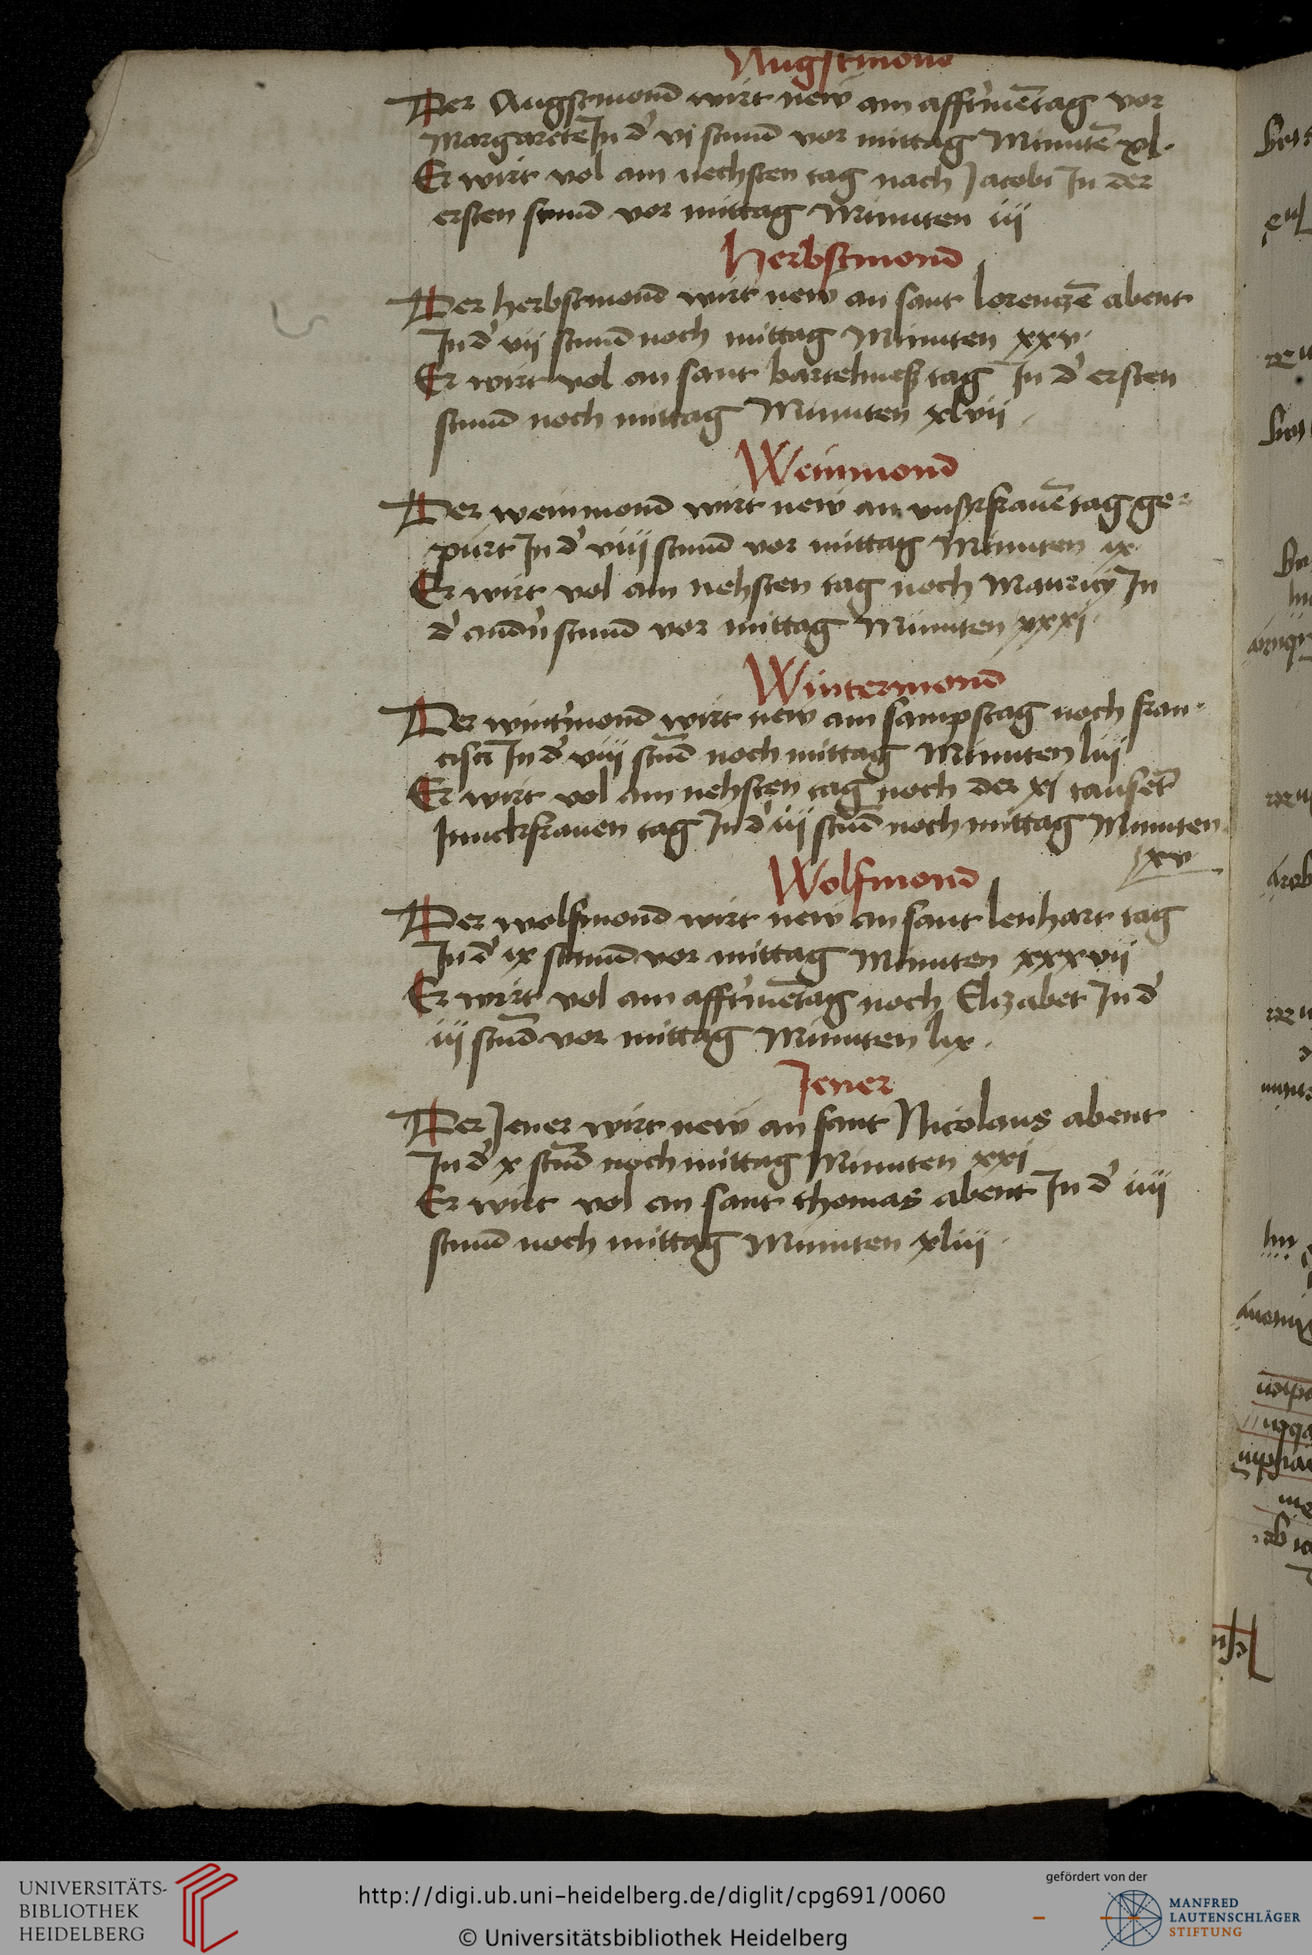 Augstmond
Der Augstmond wirt new am afftrmēntag vor
Margarete In d' vi stund vor mittag Minutē xl.
Er wirt vol am nechsten tag nach Jacobi In der
ersten stund vor mittag Minuten iii
Herbstmond
Der herbstmond wirt new an sant lorenczē abent
In d' vii stund noch mittag Minuten xxv.
Er wirt vol an sant bartelmeß tag In d' ersten
stund noch mittag Minuten xlvii.
Weinmond
Der weinmond wirt new an vnsrfrauē tag ge-
purt In d' viii stund vor mittag Minuten ix
Er wirt vol am nehsten tag noch Mauricij In
d' andrn stund vor mittag Minuten xxxi.
Wintermond
Der wintrmond wirt new am sampstag noch fran-
cisci In d' viii stūd noch mittag Minuten lvii
Er wirt vol am nehsten tag noch der xi tausēt
Junckfrauen tag In d' iii stūd noch mittag Minuten
lxv
Wolfmond
Der wolfmond wirt new an sant lenhart tag
In d' ix stund vor mittag Minuten xxxvii
Er wirt vol am afftrmēntag noch Elizabet In d'
iii stūd vor mittag Minuten lix.
Jener
Der Jener wirt new an sant Nicolaus abent
In d' x stūd noch mittag Minuten xxi
Er wirt vol an sant thomas abent In d' iiii
stund noch mittag Minuten xliii.
UNIVERSITÄTS-
BIBLIOTHEK
HEIDELBERG
http://digi.ub.uni-heidelberg.de/diglit/cpg691/0060
© Universitätsbibliothek Heidelberg
gefördert von der
MANFRED
LAUTENSCHLÄGER
STIFTUNG